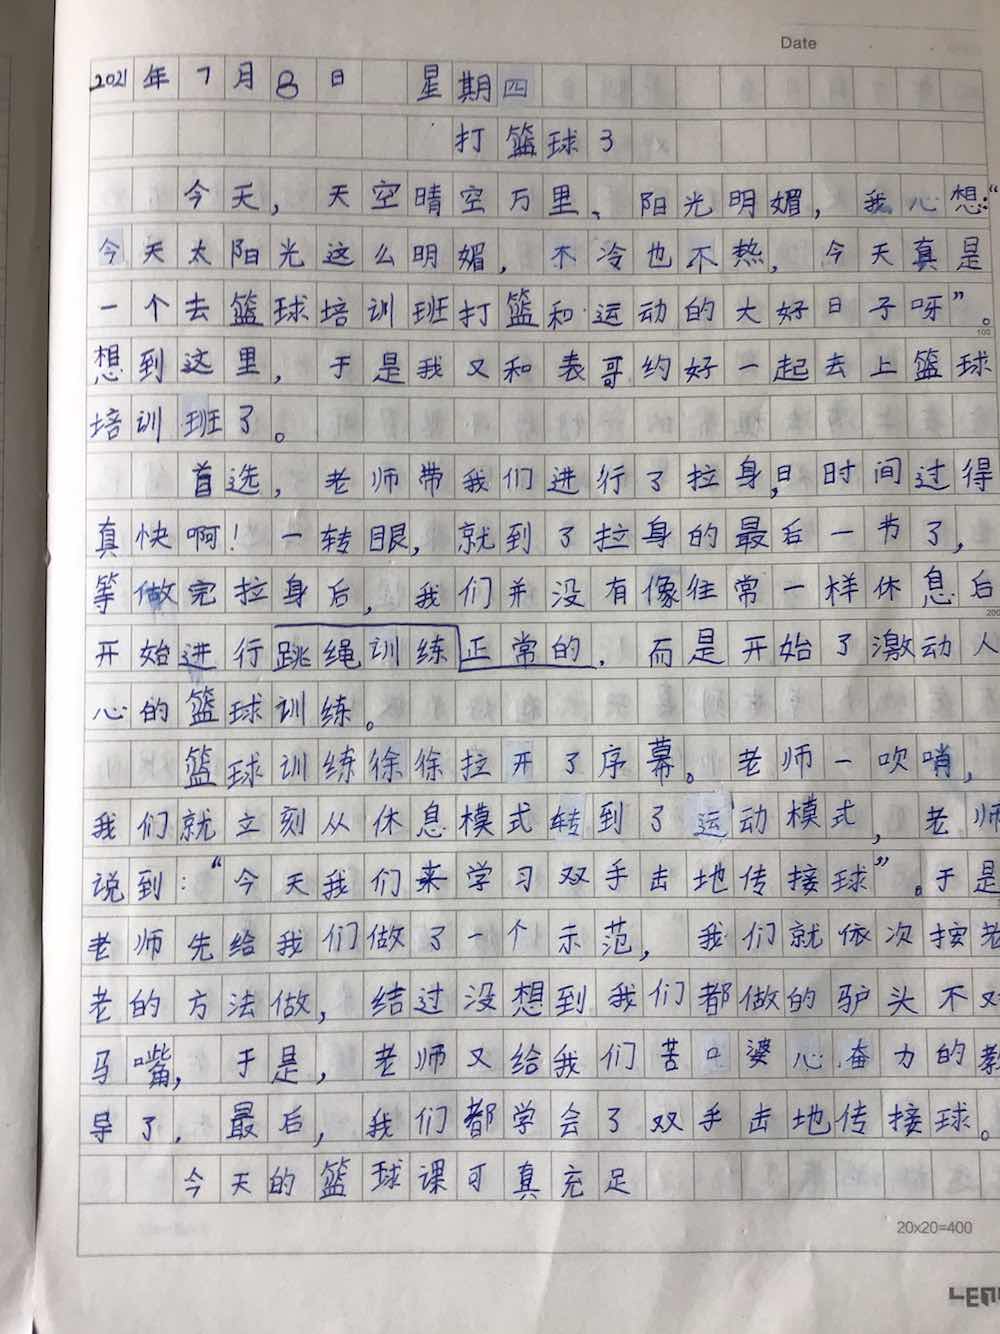 Date
2021年7月8日 星期四
打篮球3
今天，天空晴空万里、阳光明媚，我心想：“
今天太阳光这么明媚，不冷也不热，今天真是
一个去篮球培训班打篮和运动的大好日子呀”。
100
想到这里，于是我又和表哥约好一起去上篮球
培训班了。
首选，老师带我们进行了拉身，日时间过得
真快啊！一转眼，就到了拉身的最后一节了，
等做完拉身后，我们并没有像往常一样休息后
200
开始进行跳绳训练正常的，而是开始了激动人
心的篮球训练。
篮球训练徐徐拉开了序幕。老师一吹哨，
我们就立刻从休息模式转到了运动模式，老师
说到：“今天我们来学习双手击地传接球”。于是
老师先给我们做了一个示范，我们就依次按老
老的方法做，结过没想到我们都做的驴头不对
马嘴，于是，老师又给我们苦口婆心奋力的教
导了．最后，我们都学会了双手击地传接球。
今天的篮球课可真充足
20x20=400